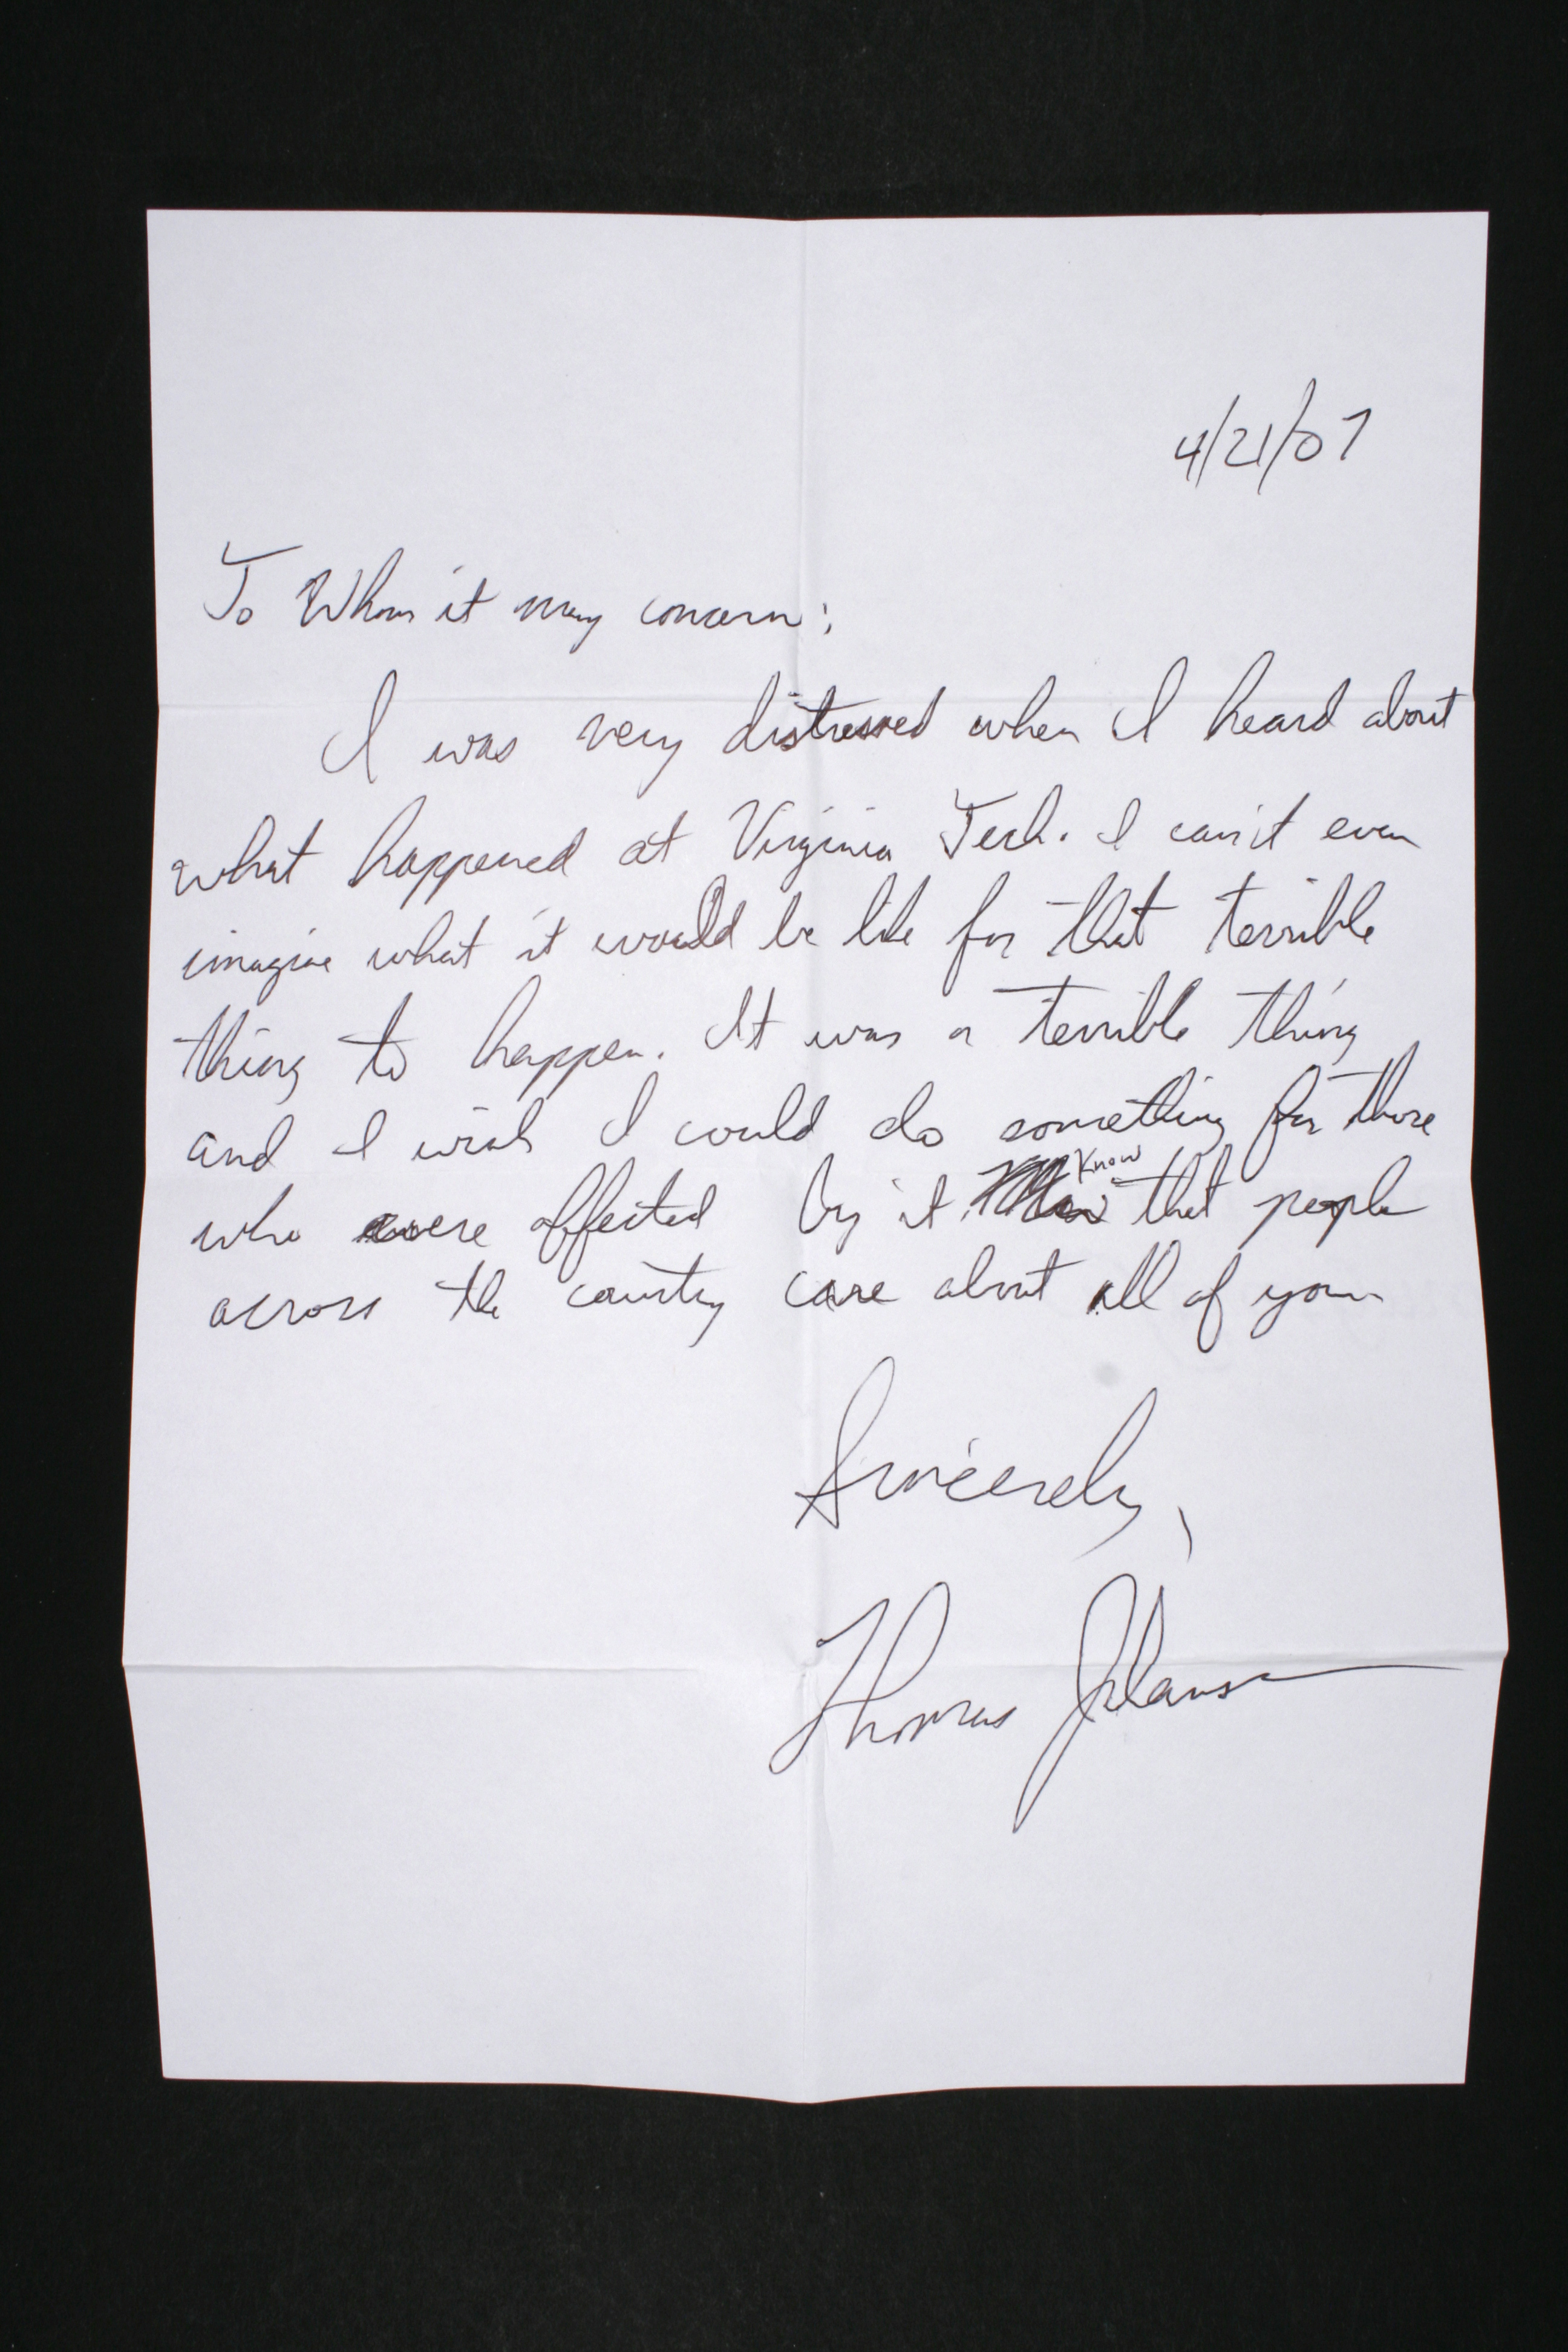 4/21/07
To Whom it may concern:
I was very distressed when I heard about
what happened at Virginia Tech. I can't even
imagine what it would be like for that terrible
thing to happen. It was a terrible thing
and I wish I could do something for those
who were affected by it. Know that people
across the country care about all of you.
Sincerely,
Thomas